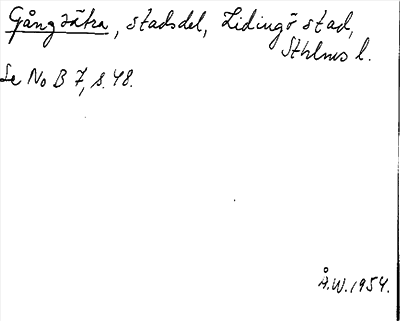 Gångsätra, stadsdel, Lidingö stad,
Sthlms l.
Se No B 7, s. 48.
Å.W. 1954.